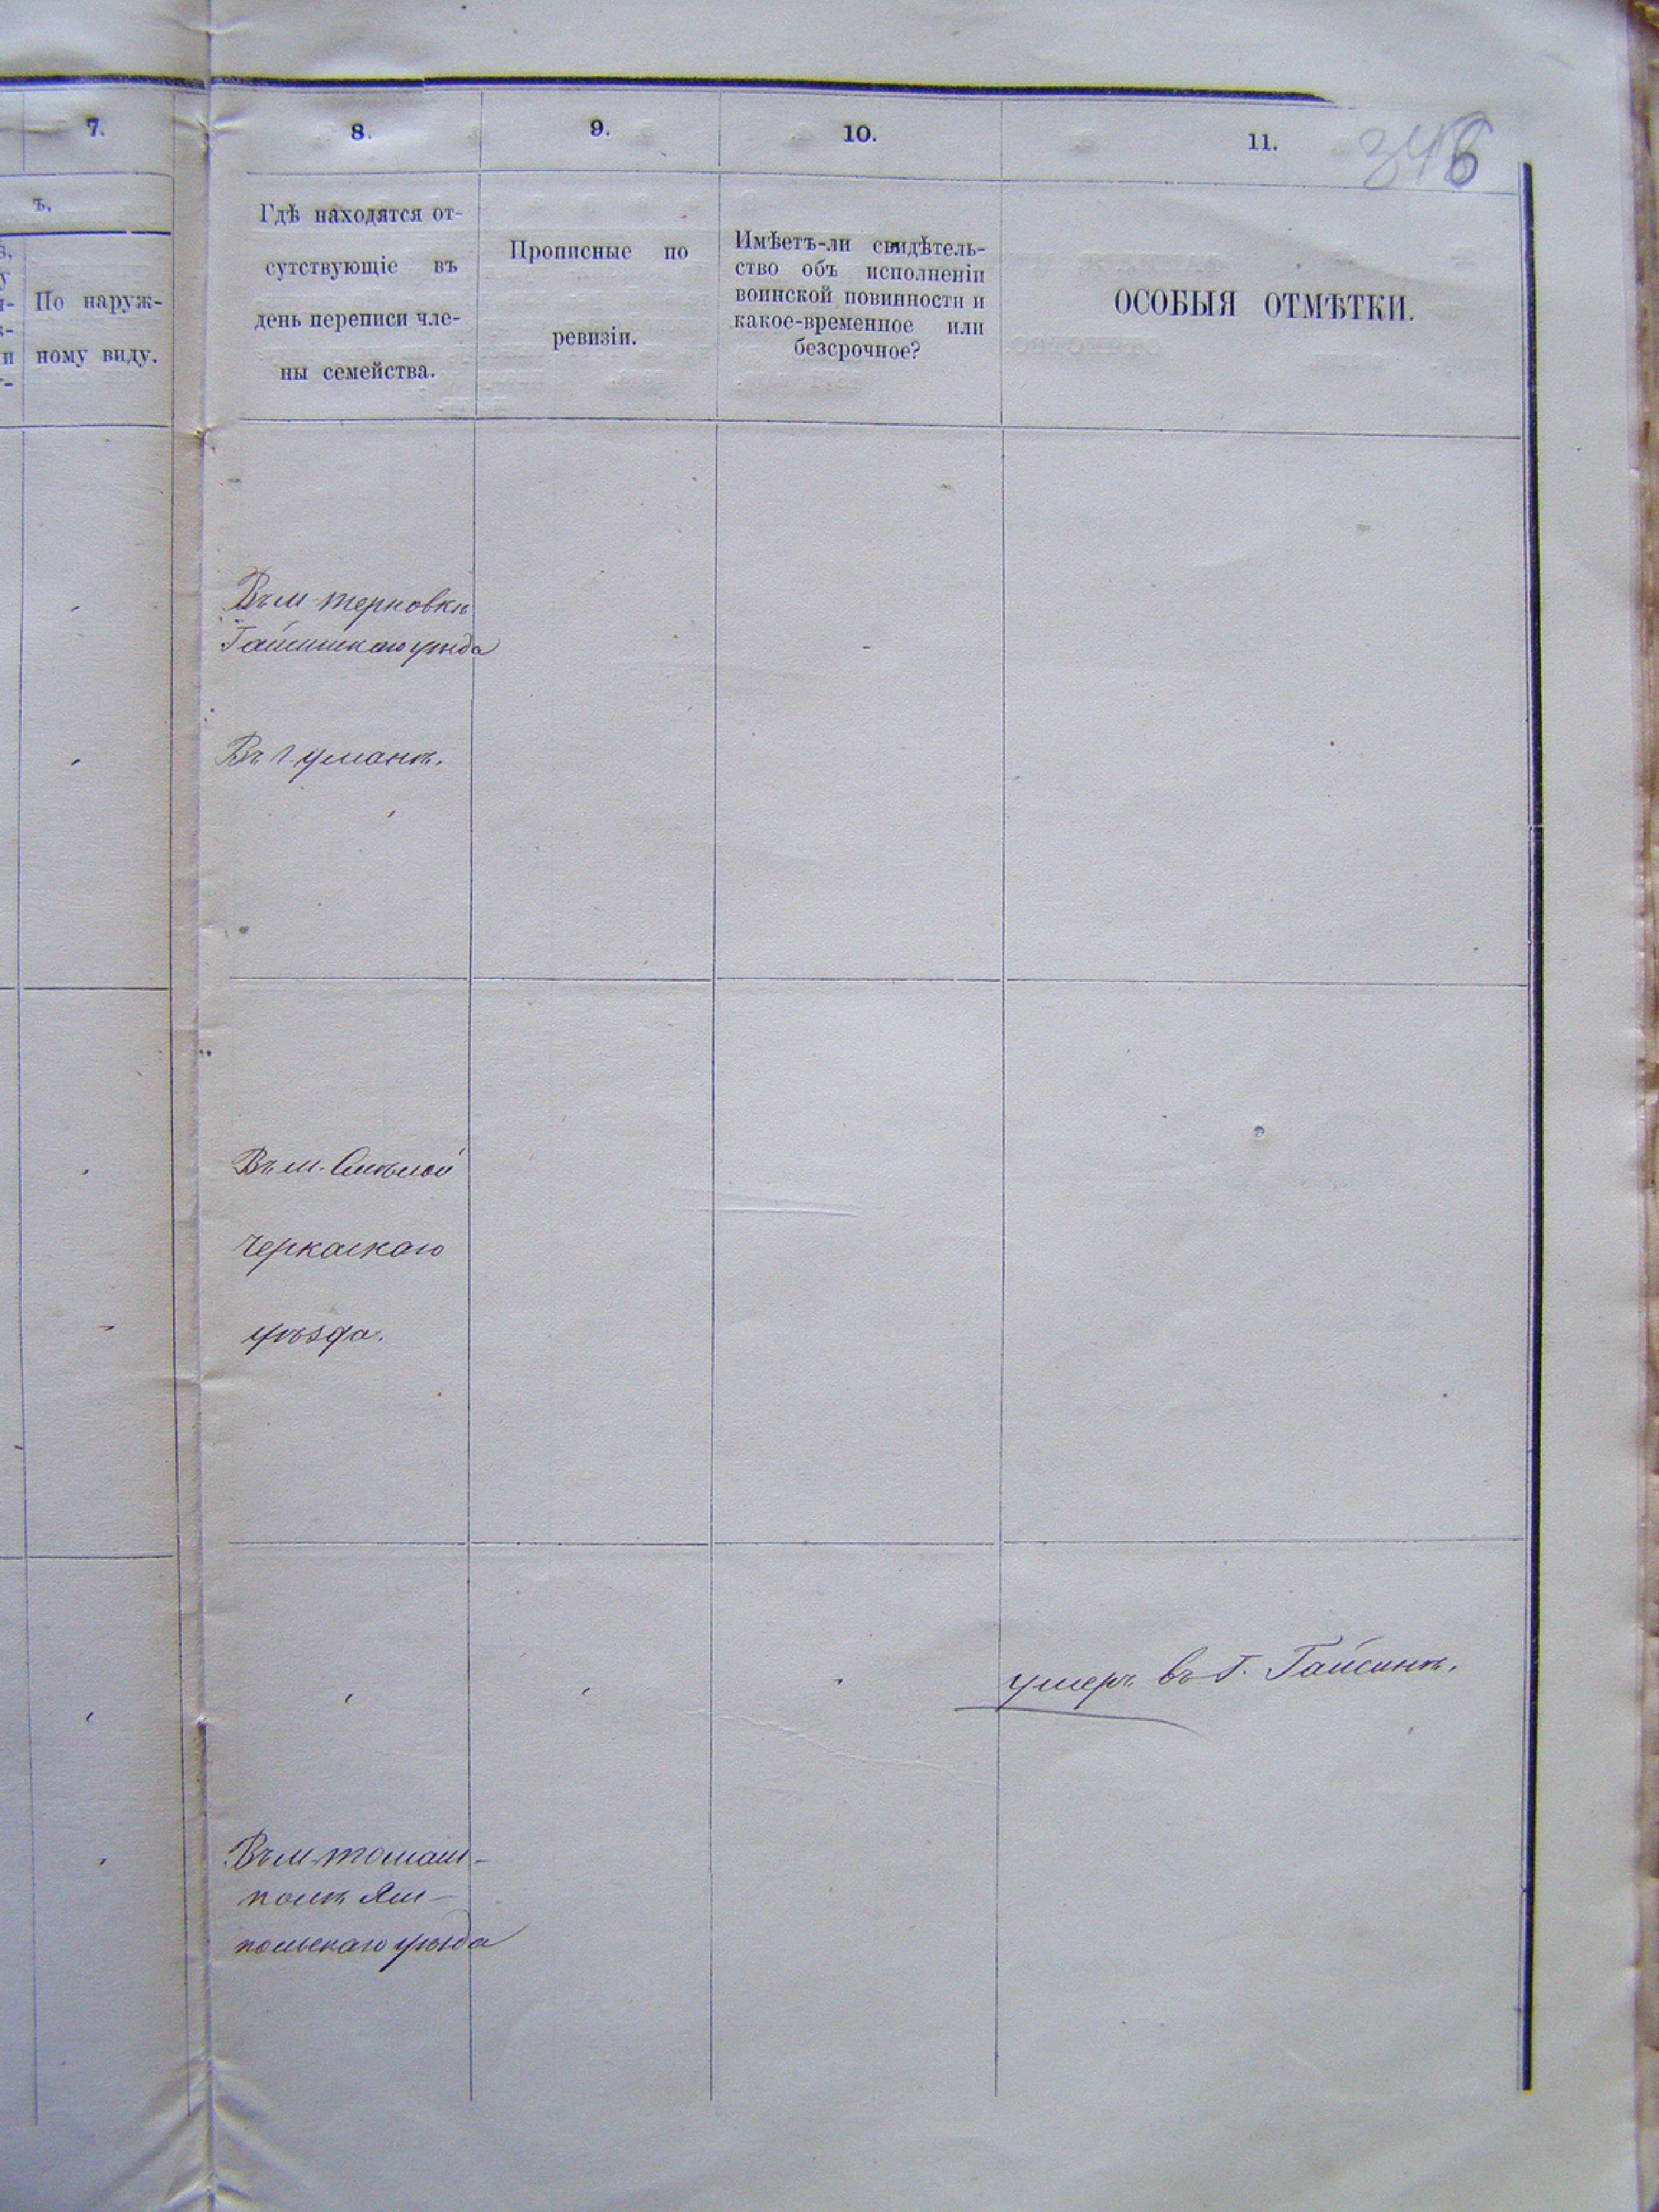 7.
8.
9.
10.
11.
346
ъ.
По наруж-
ному виду.
Гдѣ находятся от-
сутствующіе въ
день переписи чле-
ны семейства.
Прописные по
ревизіи.
Имѣетъ-ли свидѣтель-
ство объ исполненіи
воинской повинности и
какое-временное или
безсрочное?
ОСОБЫЯ ОТМѢТКИ.
Въ м терновкѣ
Гайсинскаго уѣзда
Въ г. уманѣ.
Въ м. Смѣлой
Черкаскаго
уѣзда.
умеръ въ г. Гайсинѣ.
Въ м. томаш-
полѣ Ям-
польскаго уѣзда